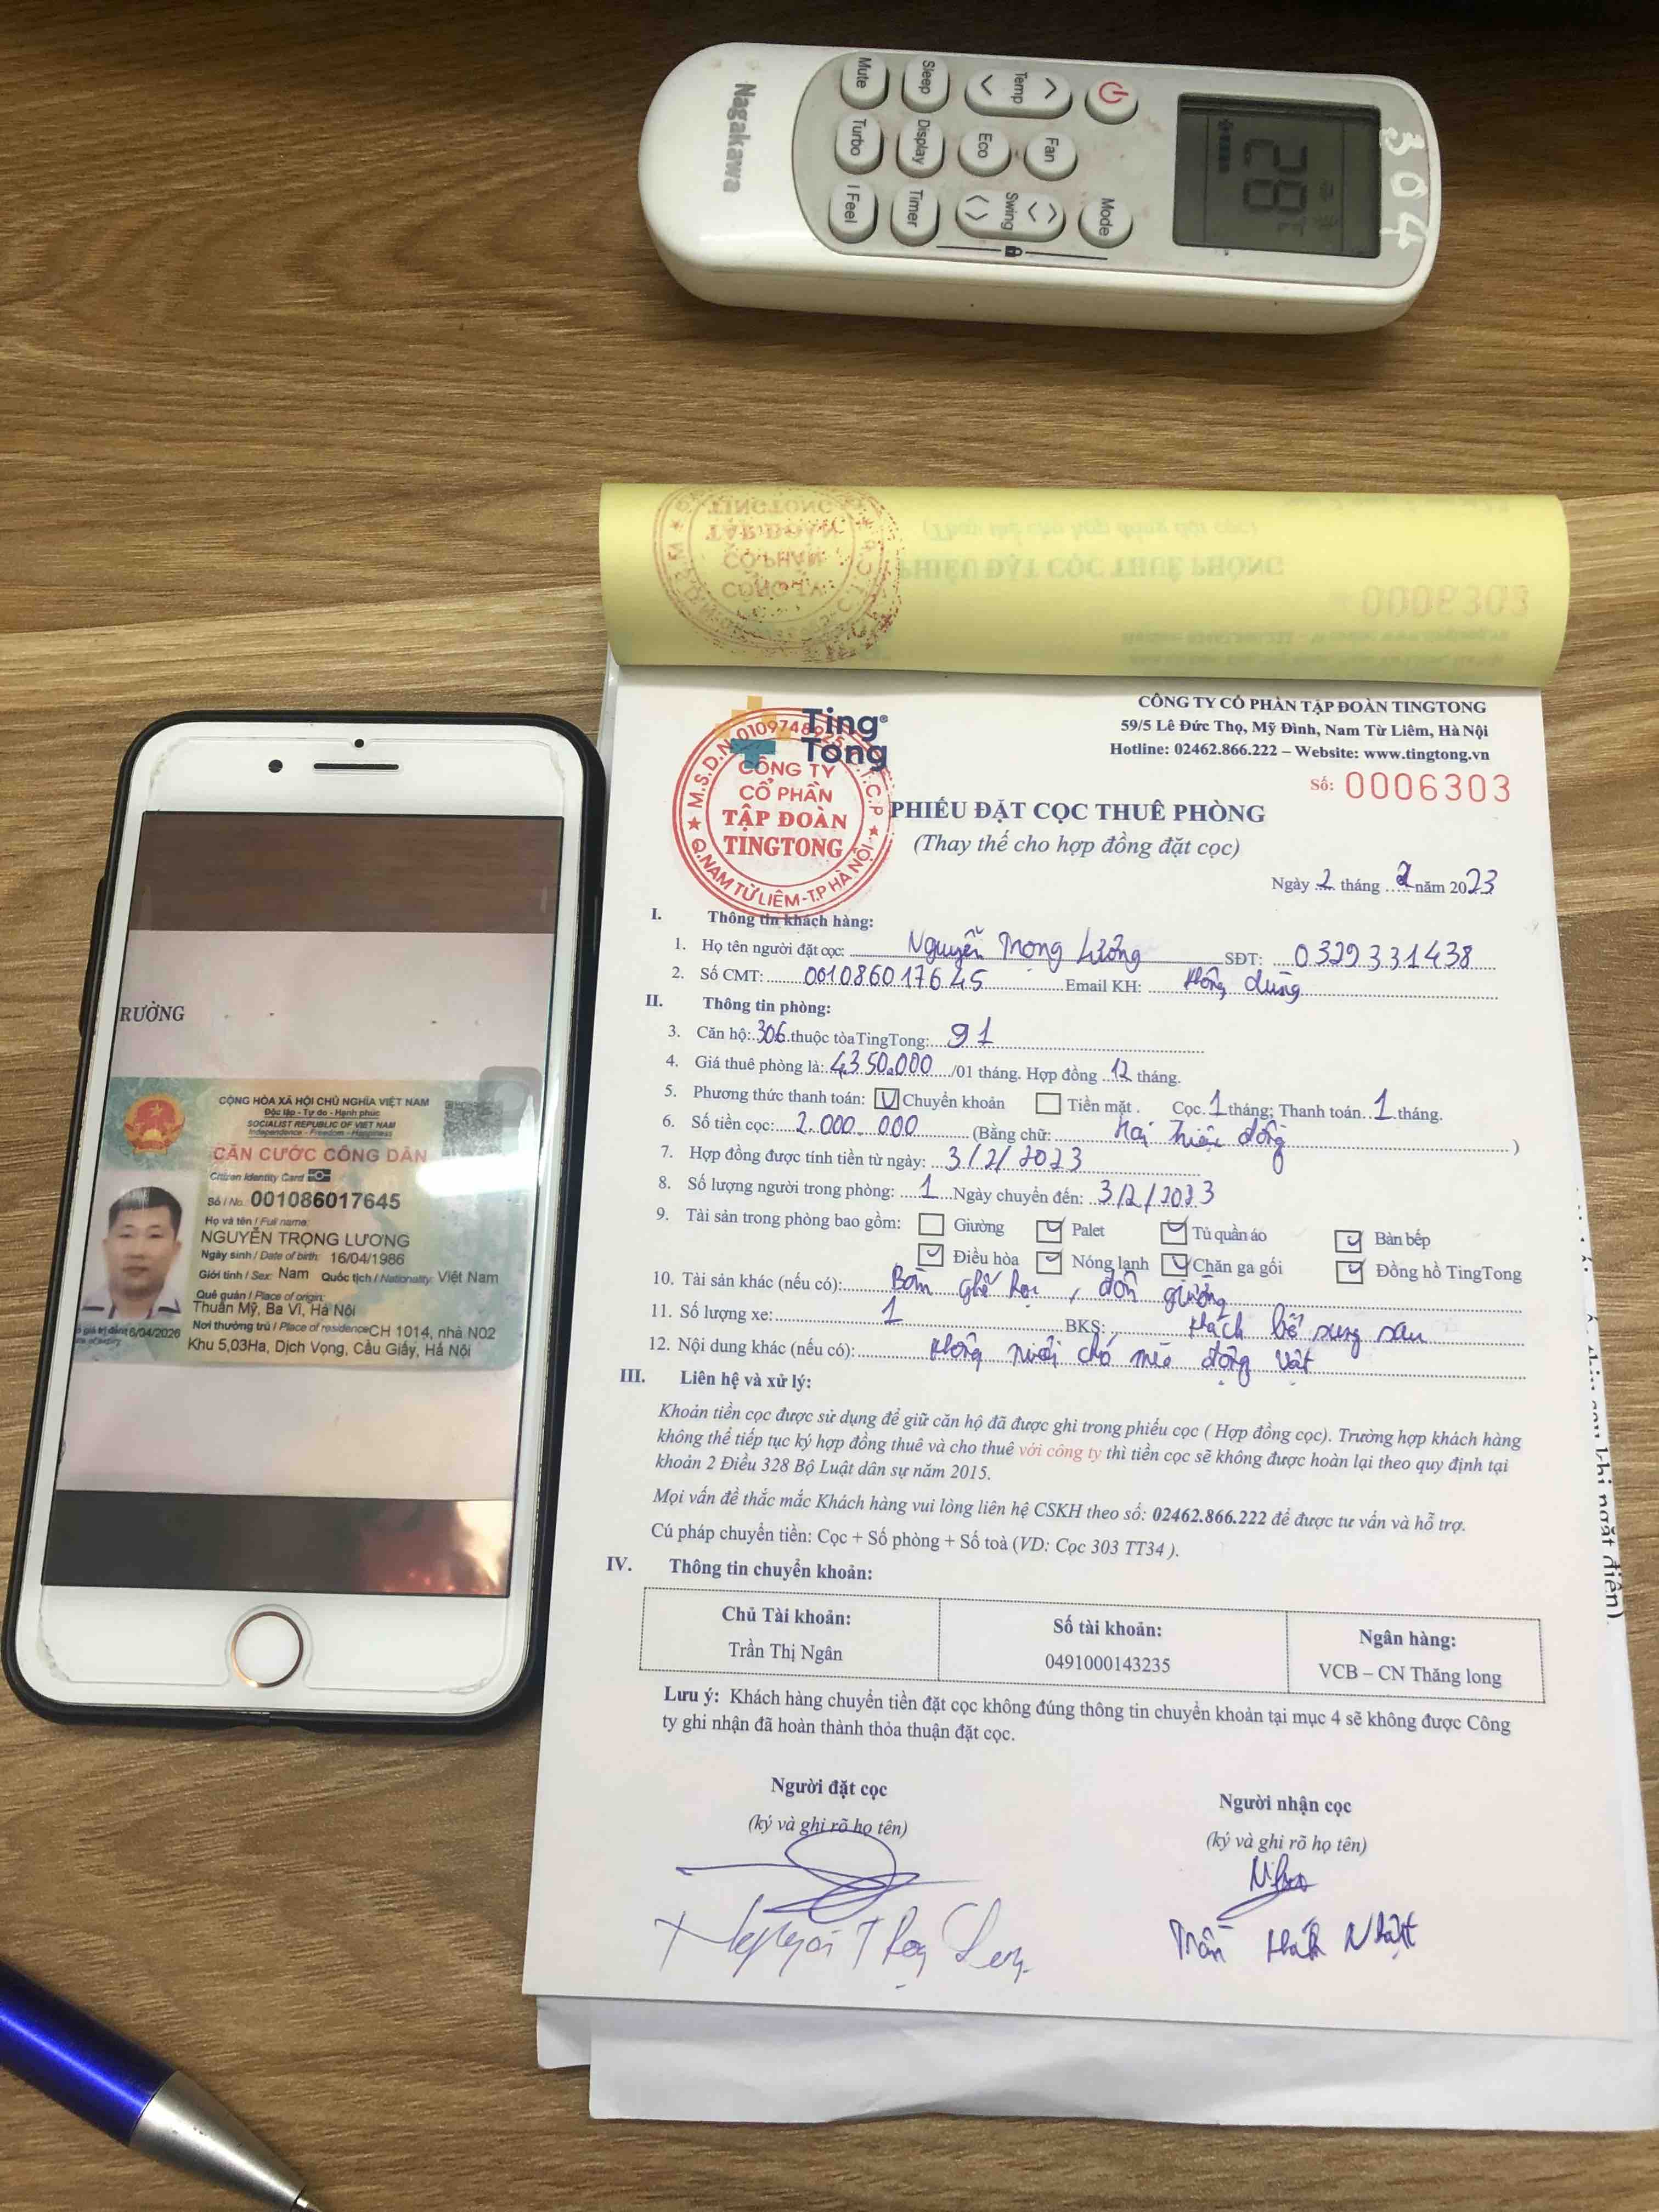 304
28
Temp
Fan
Mode
Sleep
Display
Eco
Swing
Mute
Turbo
I Feel
Timer
Nagakawa
PHIẾU ĐẶT CỌC THUÊ PHÒNG
0006303
CÔNG TY CỔ PHẦN TẬP ĐOÀN TINGTONG
59/5 Lê Đức Thọ, Mỹ Đình, Nam Từ Liêm, Hà Nội
Hotline: 02462.866.222 – Website: www.tingtong.vn
Số: 0006303
Ting Tong
CÔNG TY
CỔ PHẦN
TẬP ĐOÀN
TINGTONG
Q.NAM TỪ LIÊM-T.P HÀ NỘI
PHIẾU ĐẶT CỌC THUÊ PHÒNG
(Thay thế cho hợp đồng đặt cọc)
Ngày 2 tháng 2 năm 2023
I. Thông tin khách hàng:
1. Họ tên người đặt cọc: Nguyễn Trọng Lương SĐT: 0329331438
2. Số CMT: 001086017645 Email KH: không dùng
II. Thông tin phòng:
3. Căn hộ: 306 thuộc tòa TingTong: 91
4. Giá thuê phòng là: 4.350.000 /01 tháng. Hợp đồng 12 tháng.
5. Phương thức thanh toán: Chuyển khoản Tiền mặt. Cọc 1 tháng; Thanh toán 1 tháng.
6. Số tiền cọc: 2.000.000 (Bằng chữ: hai triệu đồng )
7. Hợp đồng được tính tiền từ ngày: 3/2/2023
8. Số lượng người trong phòng: 1 Ngày chuyển đến: 3/2/2023
9. Tài sản trong phòng bao gồm: Giường Palet Tủ quần áo Bàn bếp
Điều hòa Nóng lạnh Chăn ga gối Đồng hồ TingTong
10. Tài sản khác (nếu có): Bàn ghế học, đôn giường
11. Số lượng xe: 1 BKS: khách bổ sung sau
12. Nội dung khác (nếu có): không nuôi chó mèo động vật
III. Liên hệ và xử lý:
Khoản tiền cọc được sử dụng để giữ căn hộ đã được ghi trong phiếu cọc ( Hợp đồng cọc). Trường hợp khách hàng
không thể tiếp tục ký hợp đồng thuê và cho thuê với công ty thì tiền cọc sẽ không được hoàn lại theo quy định tại
khoản 2 Điều 328 Bộ Luật dân sự năm 2015.
Mọi vấn đề thắc mắc Khách hàng vui lòng liên hệ CSKH theo số: 02462.866.222 để được tư vấn và hỗ trợ.
Cú pháp chuyển tiền: Cọc + Số phòng + Số toà (VD: Cọc 303 TT34 ).
IV. Thông tin chuyển khoản:
Chủ Tài khoản: Số tài khoản: Ngân hàng:
Trần Thị Ngân 0491000143235 VCB – CN Thăng long
Lưu ý: Khách hàng chuyển tiền đặt cọc không đúng thông tin chuyển khoản tại mục 4 sẽ không được Công
ty ghi nhận đã hoàn thành thỏa thuận đặt cọc.
Người đặt cọc Người nhận cọc
(ký và ghi rõ họ tên) (ký và ghi rõ họ tên)
Trần Nhật
RƯỜNG
CỘNG HÒA XÃ HỘI CHỦ NGHĨA VIỆT NAM
Độc lập - Tự do - Hạnh phúc
SOCIALIST REPUBLIC OF VIET NAM
Independence - Freedom - Happiness
CĂN CƯỚC CÔNG DÂN
Citizen Identity Card
Số / No. 001086017645
Họ và tên / Full name:
NGUYỄN TRỌNG LƯƠNG
Ngày sinh / Date of birth: 16/04/1986
Giới tính / Sex: Nam Quốc tịch / Nationality: Việt Nam
Quê quán / Place of origin:
Thuần Mỹ, Ba Vì, Hà Nội
Nơi thường trú / Place of residence CH 1014, nhà N02
Khu 5,03Ha, Dịch Vọng, Cầu Giấy, Hà Nội